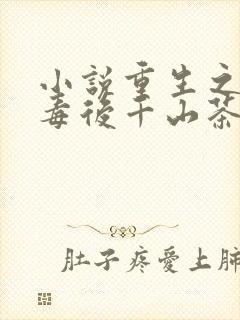 小說重生之
毒後千山茶
肚子疼愛上肺